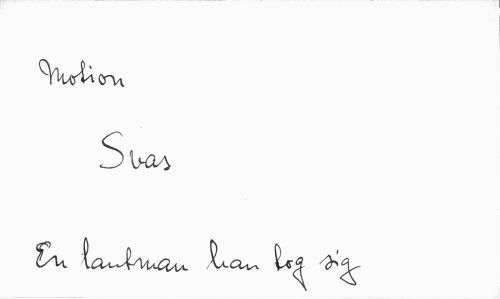 Motion
Svas
En lantman han tog sig